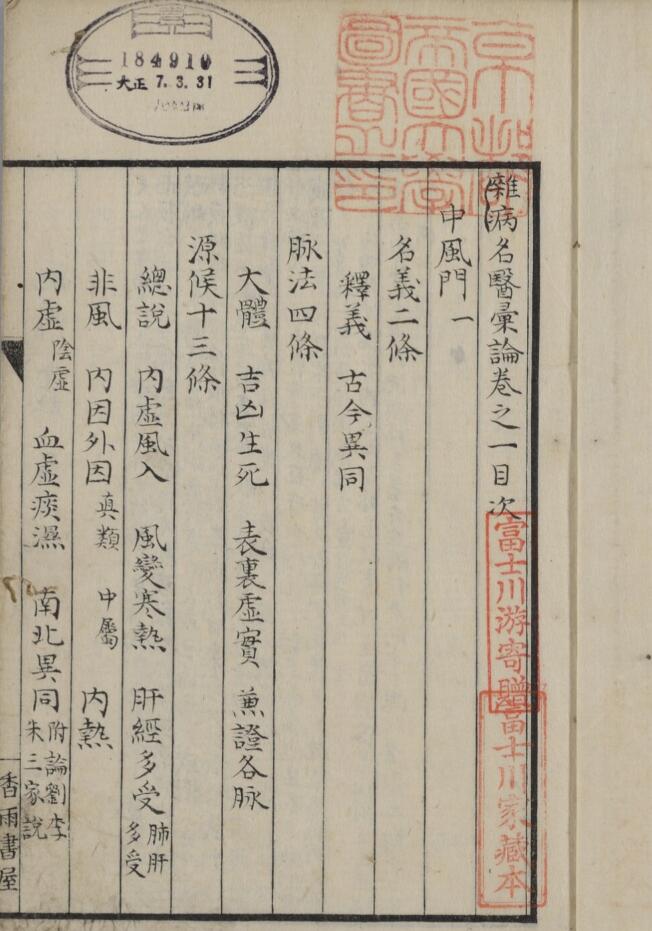 184910
大正 7.3.31
京都帝國大學圖書之印
雜病名醫彙論卷之一目次
富士川游寄贈
富士川家藏本
中風門一
名義二條
釋義 古今異同
脉法四條
大體 吉凶生死 表裏虛實 兼證各脉
源候十三條
總說 內虛風入 風變寒熱 肝經多受 肺肝多受
非風 內因外因 真類 中屬 內熱
內虛 陰虛 血虛痰濕 南北異同 附論劉李朱三家說
香雨書屋